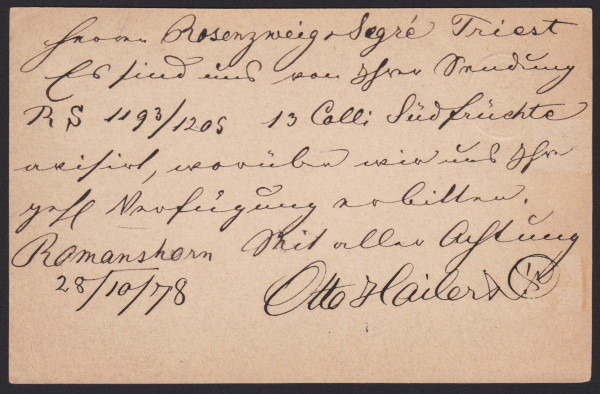 Herrn Rosenzweig & Segré Triest
Es sind uns von Ihrer Sendung
RS 1193/1205 13 Colli Südfrüchte
avisirt, worüber wir uns Ihre
gefl Verfügung erbitten.
Romanshorn Mit aller Achtung
28/10/78 Otto Hailer